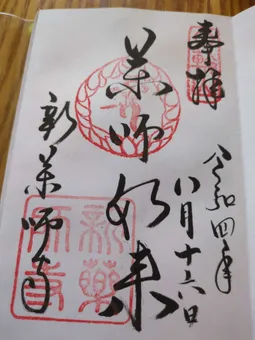 奉拝
令和四年
八月十六日
薬師如来
新薬師寺
新薬
師寺